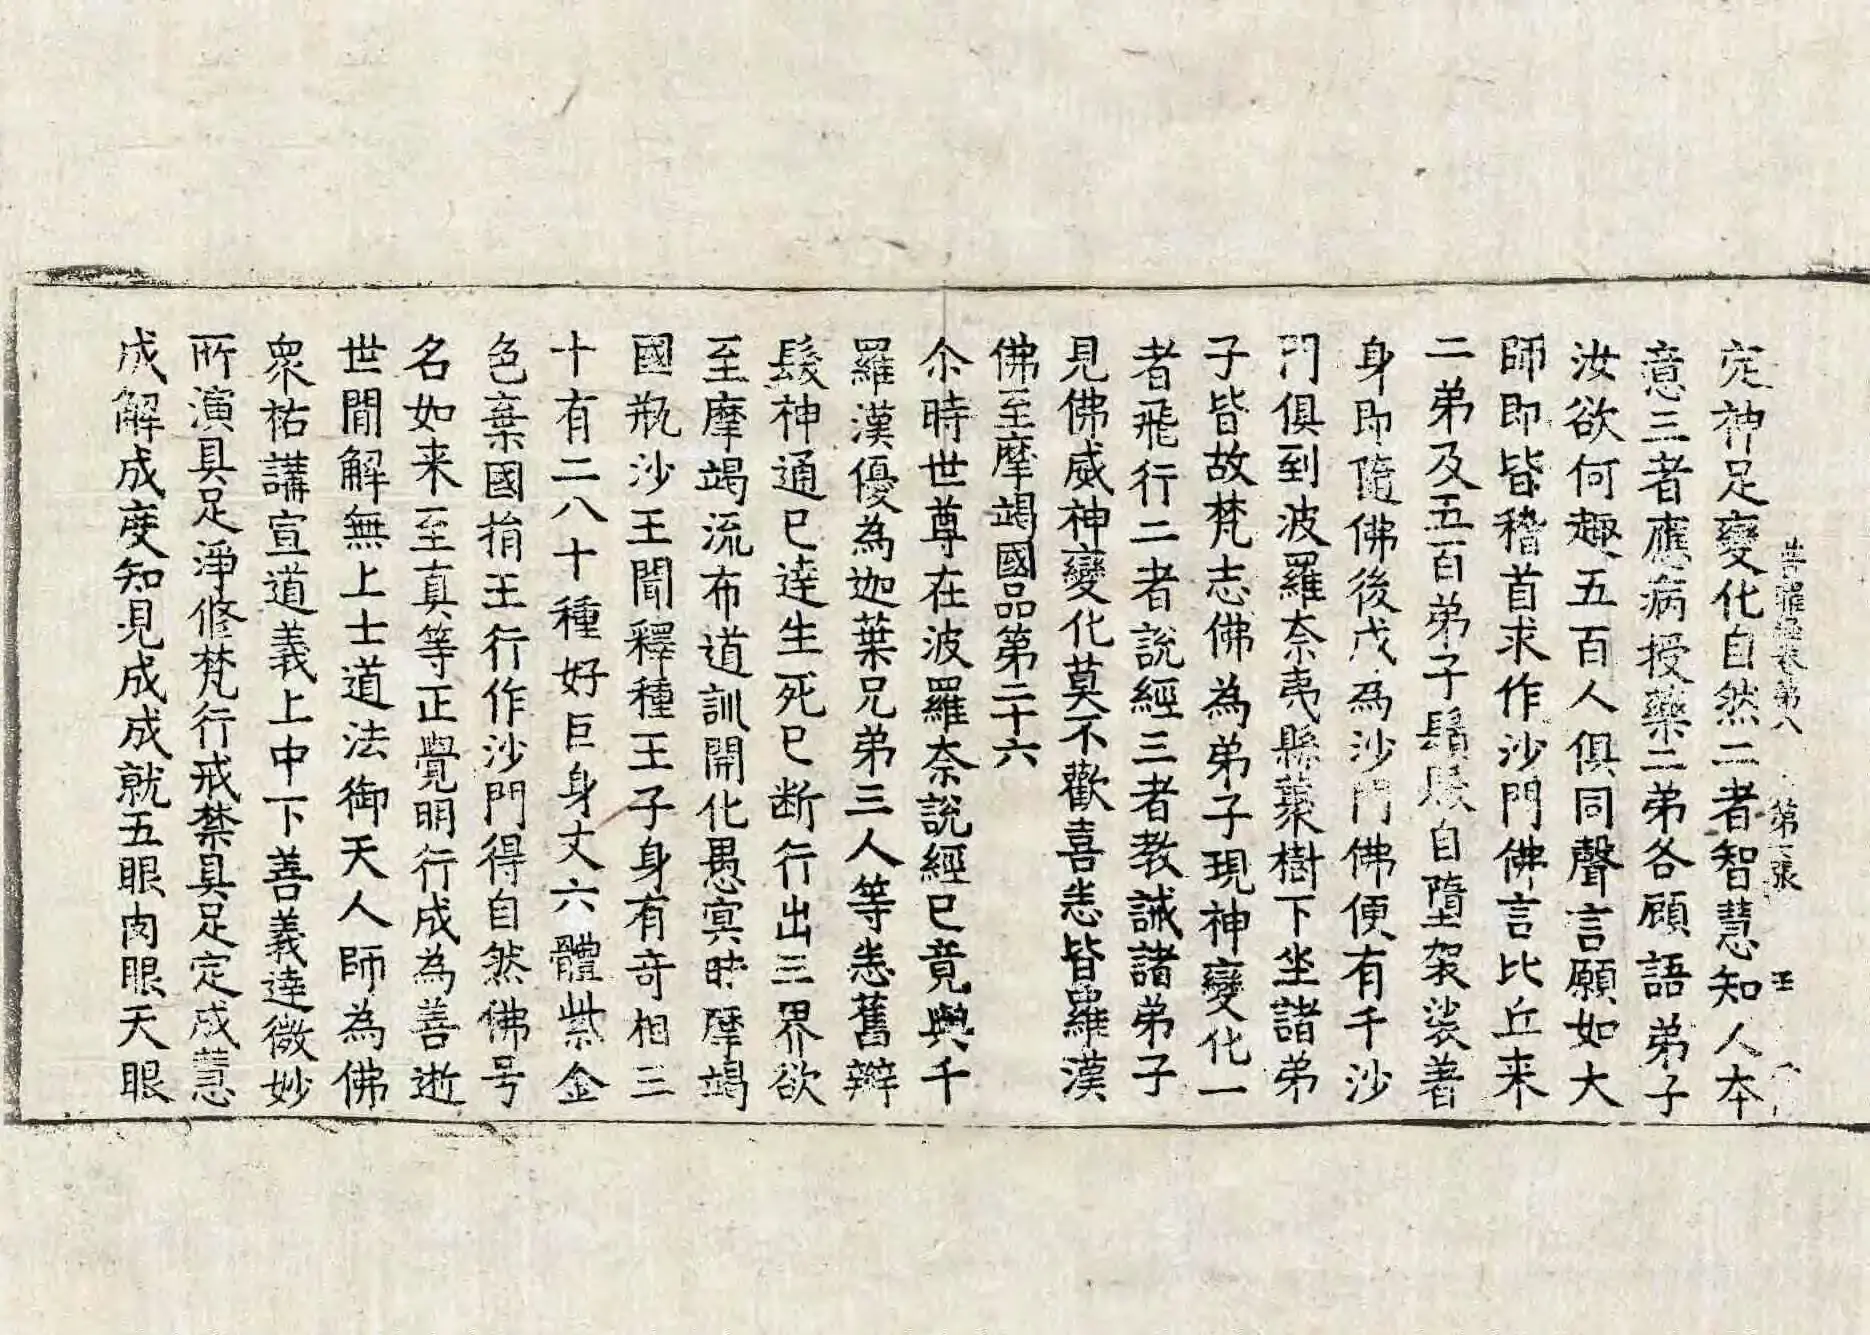 普曜經卷第八　第二張　王
定神足變化自然二者智慧知人本
意三者應病授藥二弟各顧語弟子
汝欲何趣五百人俱同聲言願如大
師即皆稽首求作沙門佛言比丘来
二弟及五百弟子鬚髮自墮袈裟著
身即隨佛後戊為沙門佛便有千沙
門俱到波羅奈夷縣藂樹下坐諸弟
子皆故梵志佛為弟子現神變化一
者飛行二者說經三者教誡諸弟子
見佛威神變化莫不歡喜恚皆羅漢
佛至摩竭國品第二十六
尒時世尊在波羅奈說經已竟與千
羅漢優為迦葉兄弟三人等恚舊辮
髮神通已達生死已断行出三界欲
至摩竭流布道訓開化愚冥時摩竭
國瓶沙王聞釋種王子身有奇相三
十有二八十種好巨身丈六體紫金
色棄國捐王行作沙門得自然佛号
名如来至真等正覺明行成為善逝
世間解無上士道法御天人師為佛
衆祐講宣道義上中下善義達微妙
所演具足淨修梵行戒禁具足定成慧
成解成度知見成成就五眼肉眼天眼